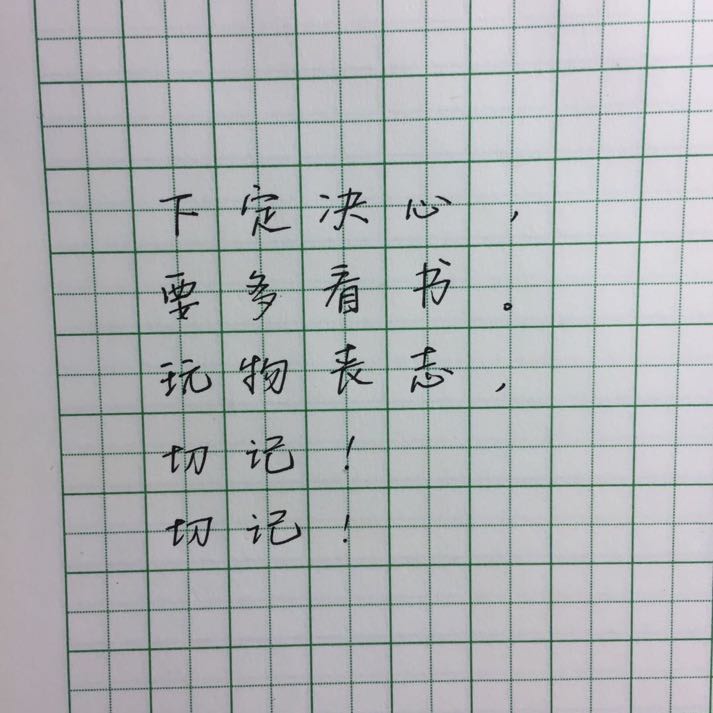 下定决心，
要多看书。
玩物丧志，
切记！
切记！